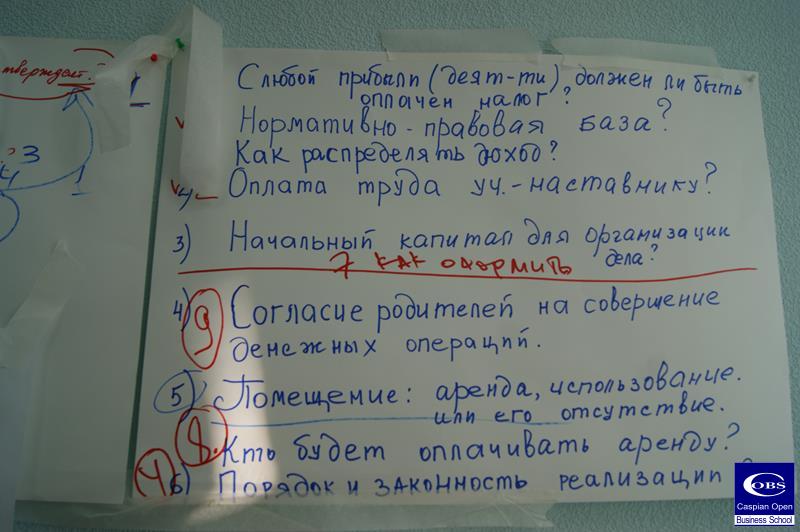 тверждает.
3
4
1
С любой прибыли (деят-ти), должен ли быть
оплачен налог?
Нормативно-правовая база?
Как распределять доход?
4 Оплата труда уч.-наставнику?
3) Начальный капитал для организации
дела?
7 как оформить
4) 9 Согласие родителей на совершение
денежных операций.
5) Помещение: аренда, использование.
или его отсутствие.
8. Кть будет оплачивать аренду?
4 6) Порядок и законность реализации ?
COBS
Caspian Open
Business School